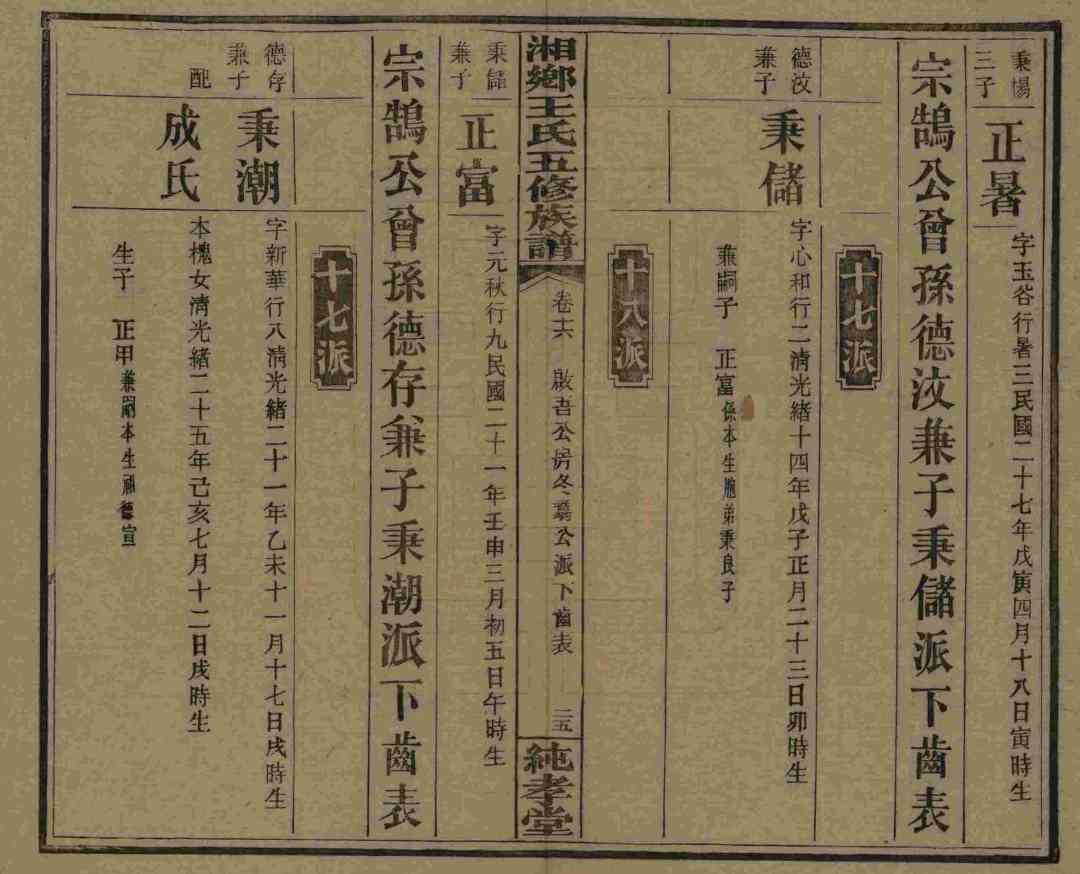 秉惕三子
正暑
字玉谷行暑三民國二十七年戊寅四月十八日寅時生
宗鵠公曾孫德汶兼子秉儲派下齒表
十七派
德汶兼子
秉儲
字心和行二清光緒十四年戊子正月二十三日卯時生
兼嗣子 正富係本生胞弟秉良子
十八派
湘鄉王氏五修族譜
卷十六 啟吾公房冬翥公派下齒表 二五
純孝堂
秉儲兼子
正富
字元秋行九民國二十一年壬申三月初五日午時生
宗鵠公曾孫德存兼子秉潮派下齒表
十七派
德存兼子
秉潮
字新華行八清光緒二十一年乙未十一月十七日戌時生
配
成氏
本槐女清光緒二十五年己亥七月十二日戌時生
生子 正甲兼嗣本生祖德宣